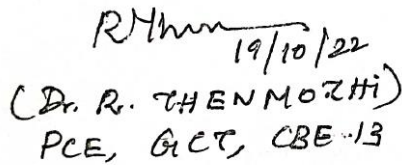 19/10/22
(Dr. R. THENMOZHi)
PCE, GCT, CBE-13